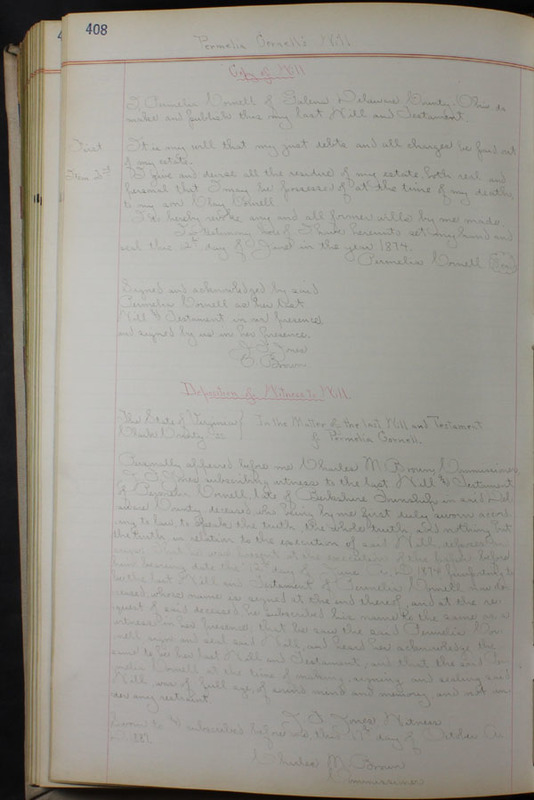 408
Permelia Cornell's Will
Copy of Will
I Permelia Cornell of Galena Delaware County Ohio do
make and publish this my last Will and Testament.
First It is my will that my just debts and all charges be paid out
of my estate.
Item 2nd I give and devise all the residue of my estate both real and
personal that I may be possessed of at the time of my death
to my son Clay Cornell
I do hereby revoke any and all former wills by me made
In testimony hereof I have hereunto set my hand and
seal this 2d day of June in the year 1874.
Permelia Cornell (Seal)
Signed and acknowledged by said
Permelia Cornell as her last
Will & Testament in our presence
and signed by us in her presence.
Jones
Brown
Deposition of Witness to Will
The State of In the Matter of the last Will and Testament
County ss of Permelia Cornell.
Personally appeared before me Charles M. Brown Commissioner
Jones subscribing witness to the last Will & Testament
of Permelia Cornell late of Berkshire Township in said Del-
aware County deceased who being by me first duly sworn accord-
ing to law to speak the truth, the whole truth, and nothing but
the truth in relation to the execution of said Will
was present at the execution of the
bearing date the 2d day of June A.D. 1874 purporting to
be the last Will and Testament of Permelia Cornell now de-
ceased, whose name is signed at the end thereof, and at the re-
quest of said deceased he subscribed his name to the same as a
witness in her presence, that he saw the said Permelia Cor-
nell, sign and seal said Will, and heard her acknowledge the
same to be her last Will and Testament, and that the said Per-
melia Cornell at the time of making, signing and sealing said
Will was of full age, of sound mind and memory, and not un-
der any restraint
Jones Witness
Sworn to & subscribed before me, this day of October A.
Charles M. Brown
Commissioner